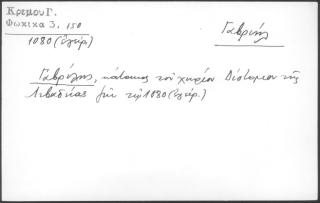 Κρεμου Γ.
Φωκικα 3, 150
1080 (ἔγγρ.)
Γαβριήλ
Γαβρίλης, κάτοικος τοῦ χωρίου Δίστομον τῆς
Λεβαδείας μὲ τῷ 1080 (ἔγγρ.)